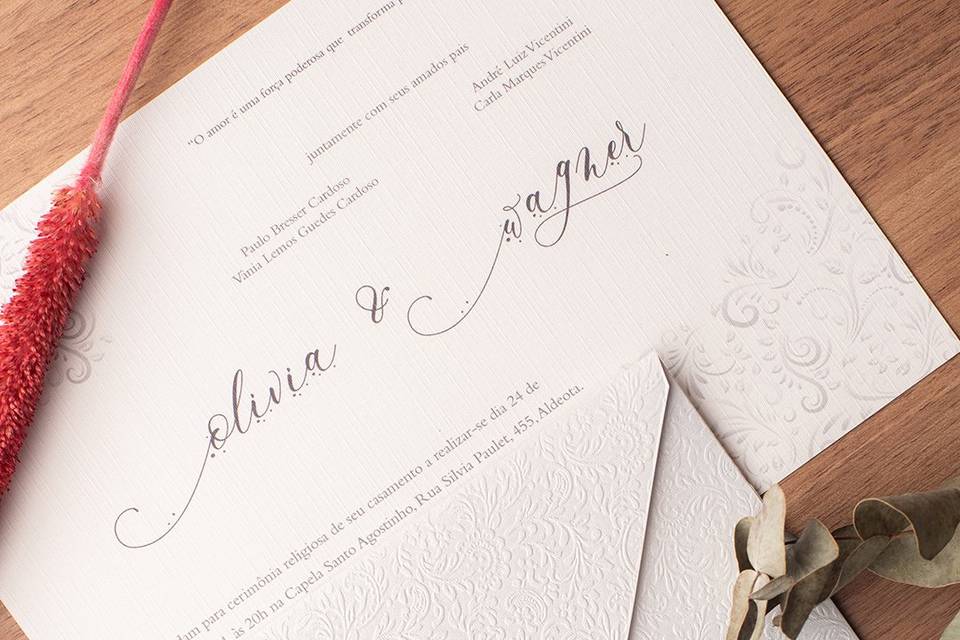 "O amor é uma força poderosa que transforma
juntamente com seus amados pais
Paulo Bresser Cardoso
Vânia Lemos Guedes Cardoso
André Luiz Vicentini
Carla Marques Vicentini
olivia & wagner
dam para cerimônia religiosa de seu casamento a realizar-se dia 24 de
às 20h na Capela Santo Agostinho, Rua Silvia Paulet, 455, Aldeota.